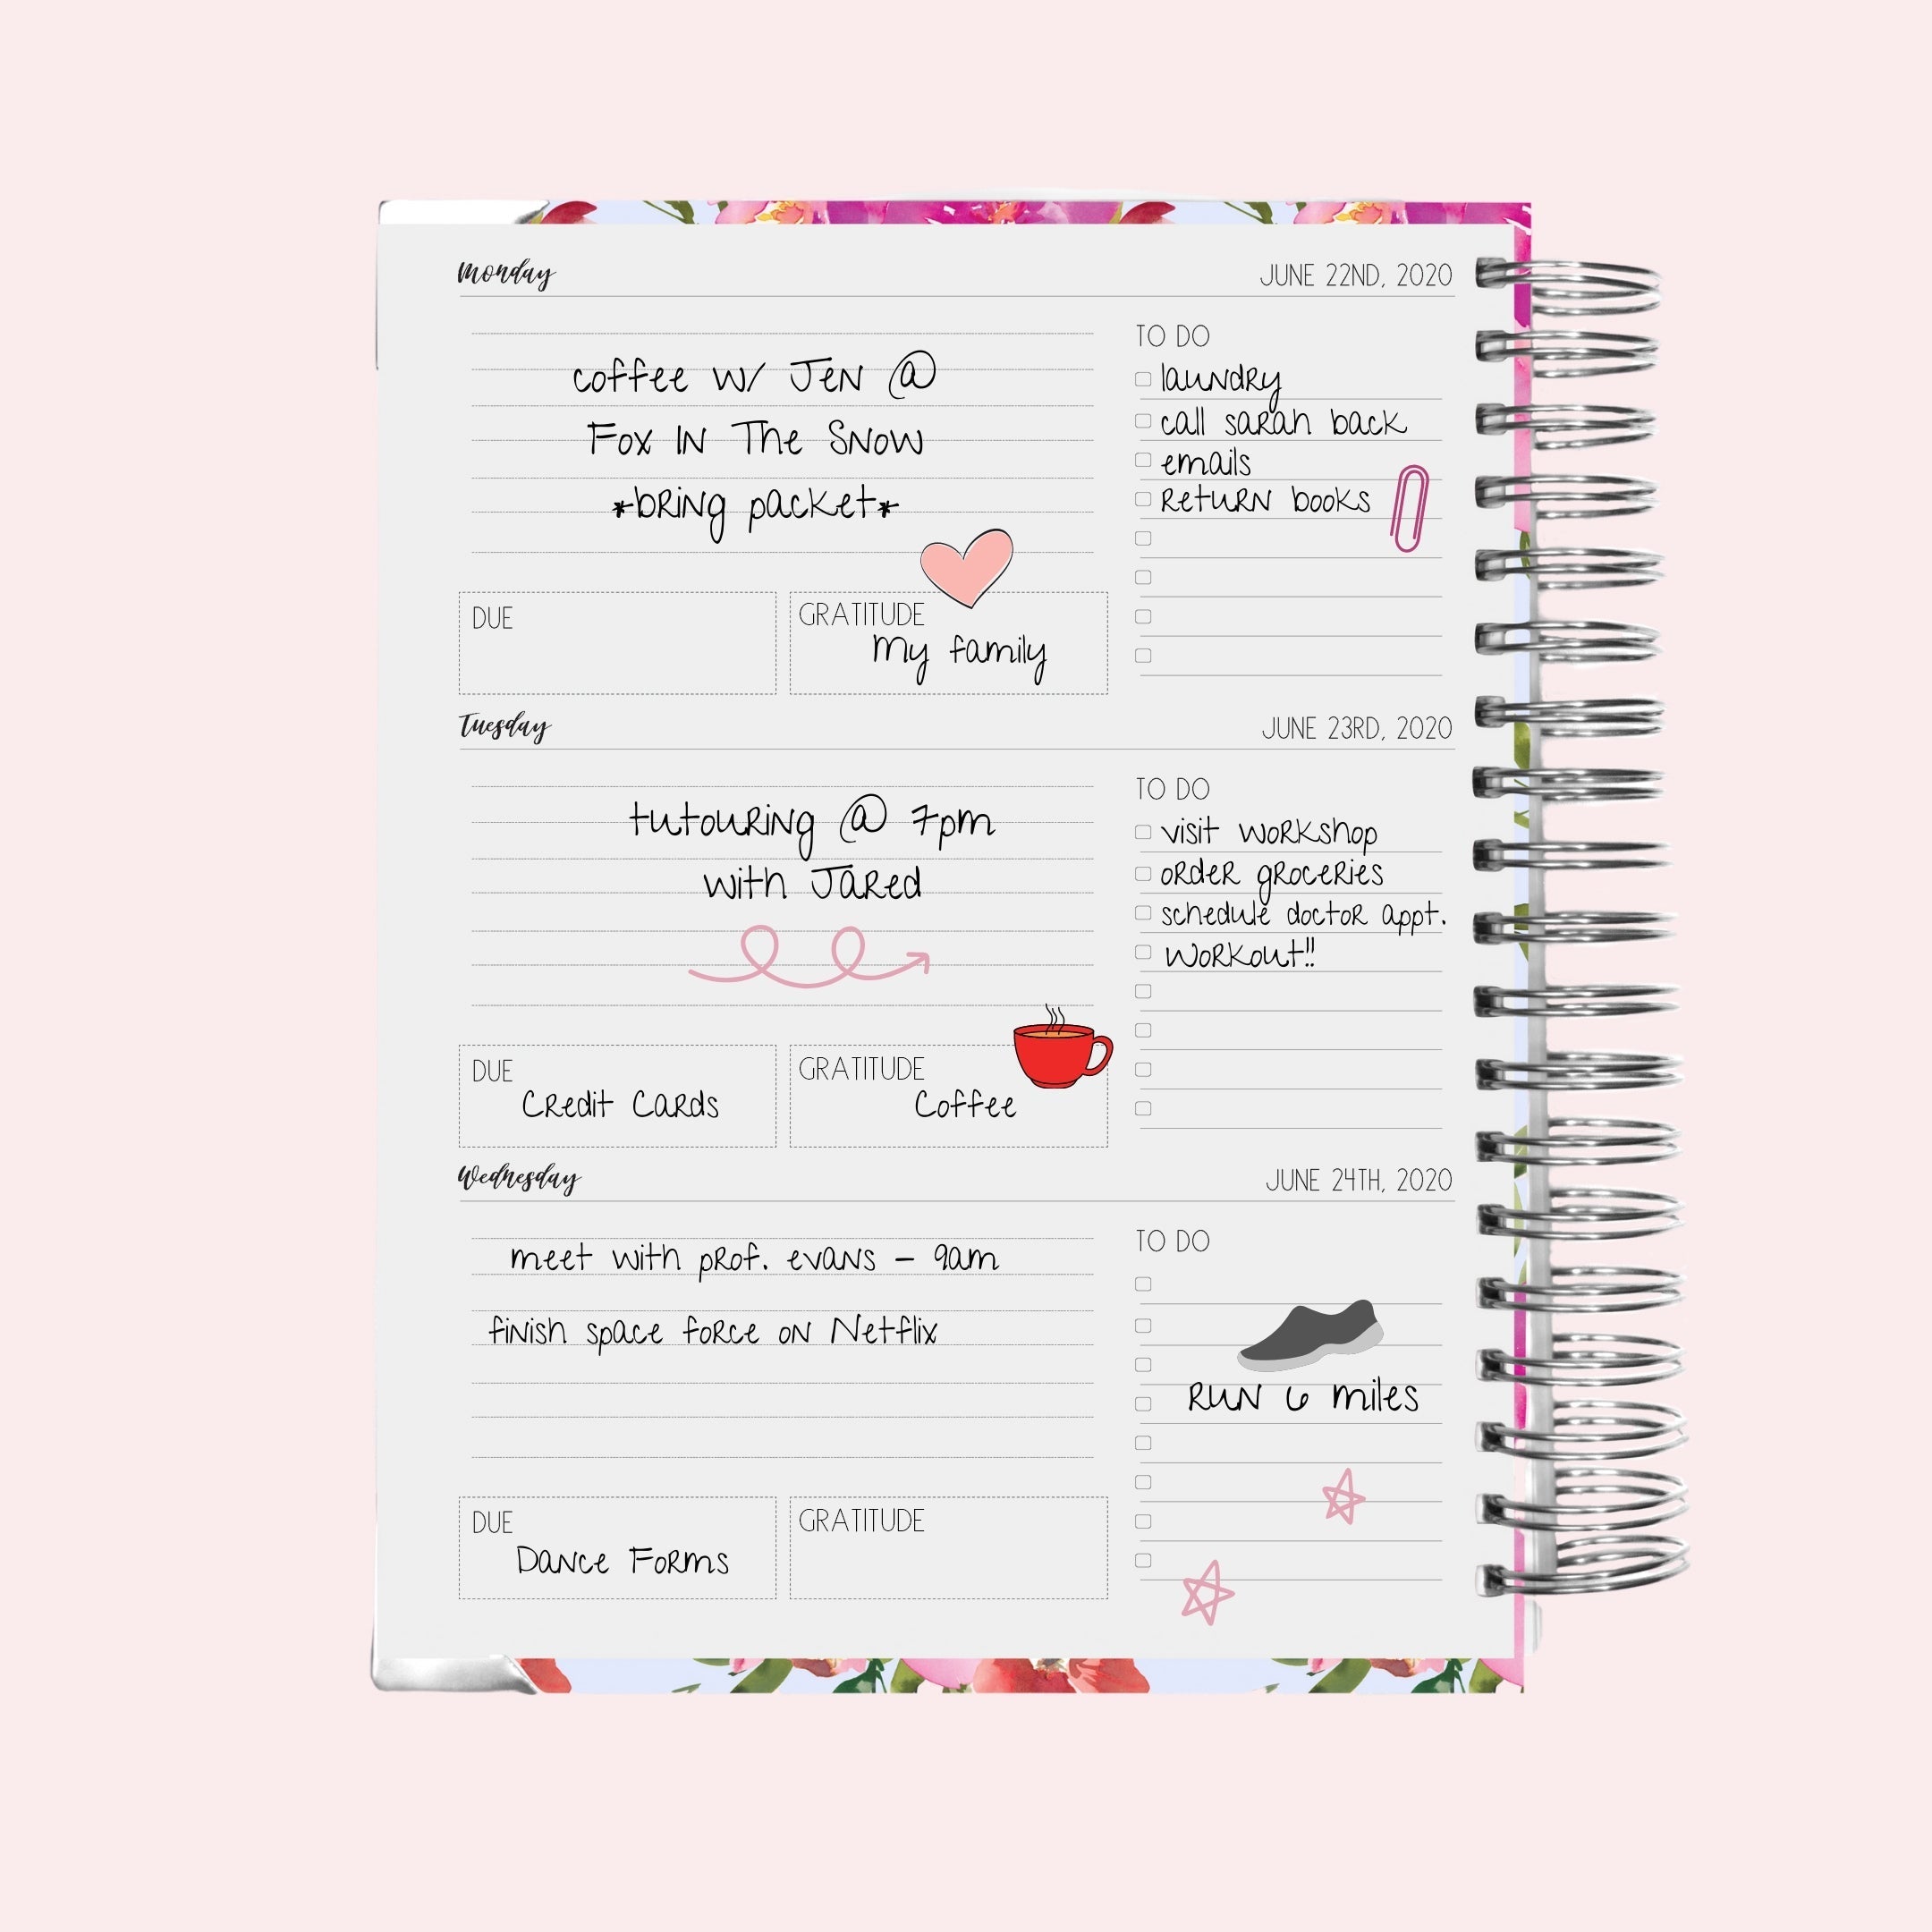 Monday
JUNE 22ND, 2020
coffee w/ Jen @
Fox In The Snow
*bring packet*
TO DO
laundry
call sarah back
emails
return books
DUE
GRATITUDE
My family
Tuesday
JUNE 23RD, 2020
tutouring @ 7pm
with Jared
TO DO
visit workshop
order groceries
schedule doctor appt.
workout!!
DUE
Credit Cards
GRATITUDE
Coffee
Wednesday
JUNE 24TH, 2020
meet with prof. evans - 9am
finish space force on Netflix
TO DO
Run 6 miles
DUE
Dance Forms
GRATITUDE